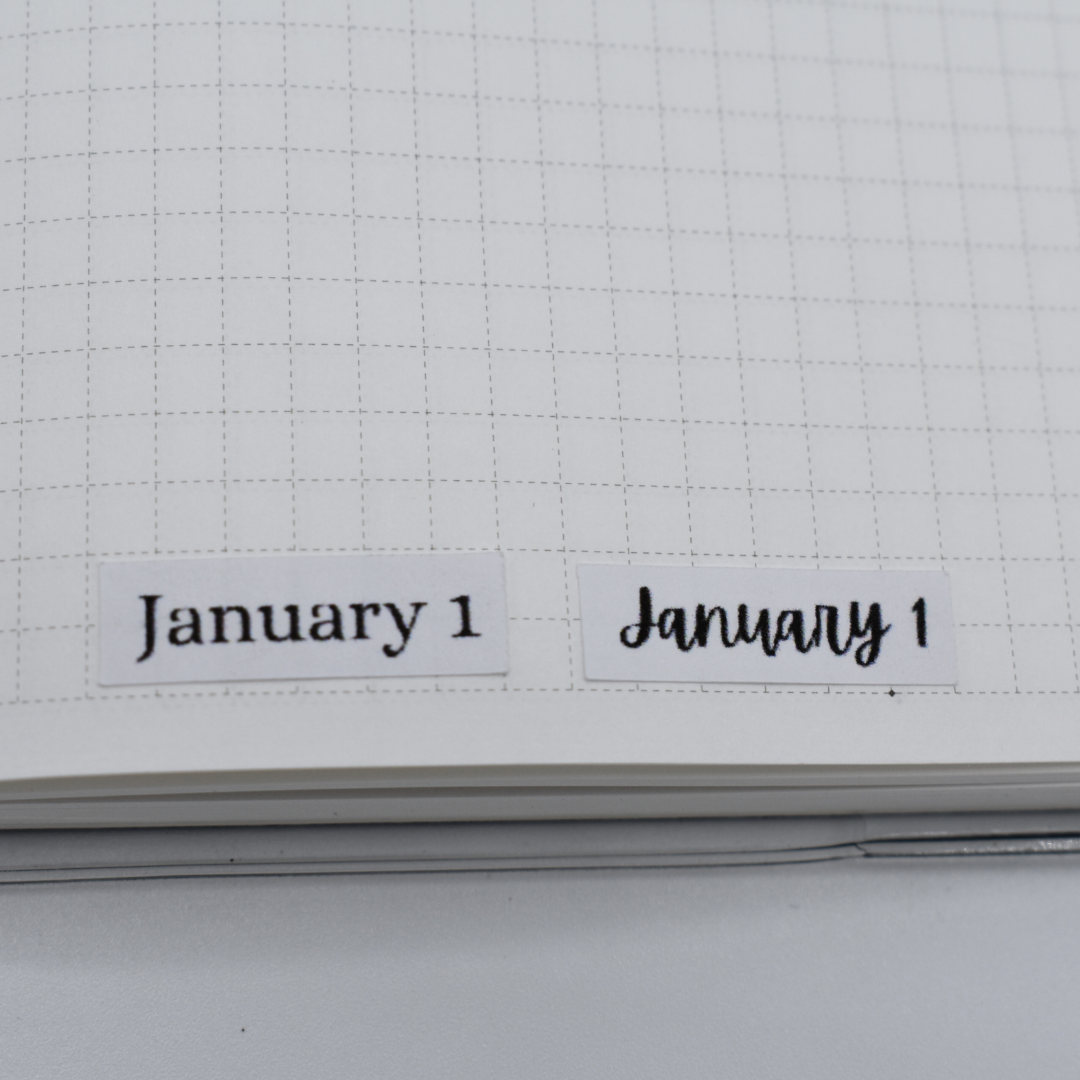 January 1
January 1